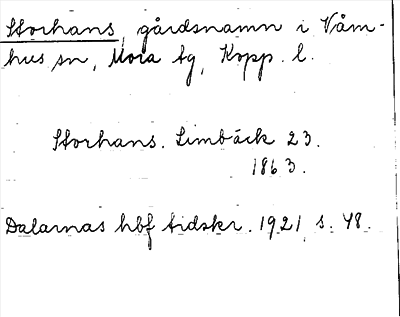 Storhans, gårdsnamn i Våm-
hus sn, Mora tg, Kopp. l.
Storhans. Limbäck 23.
1863.
Dalarnas hbf tidskr. 1921, s. 48.